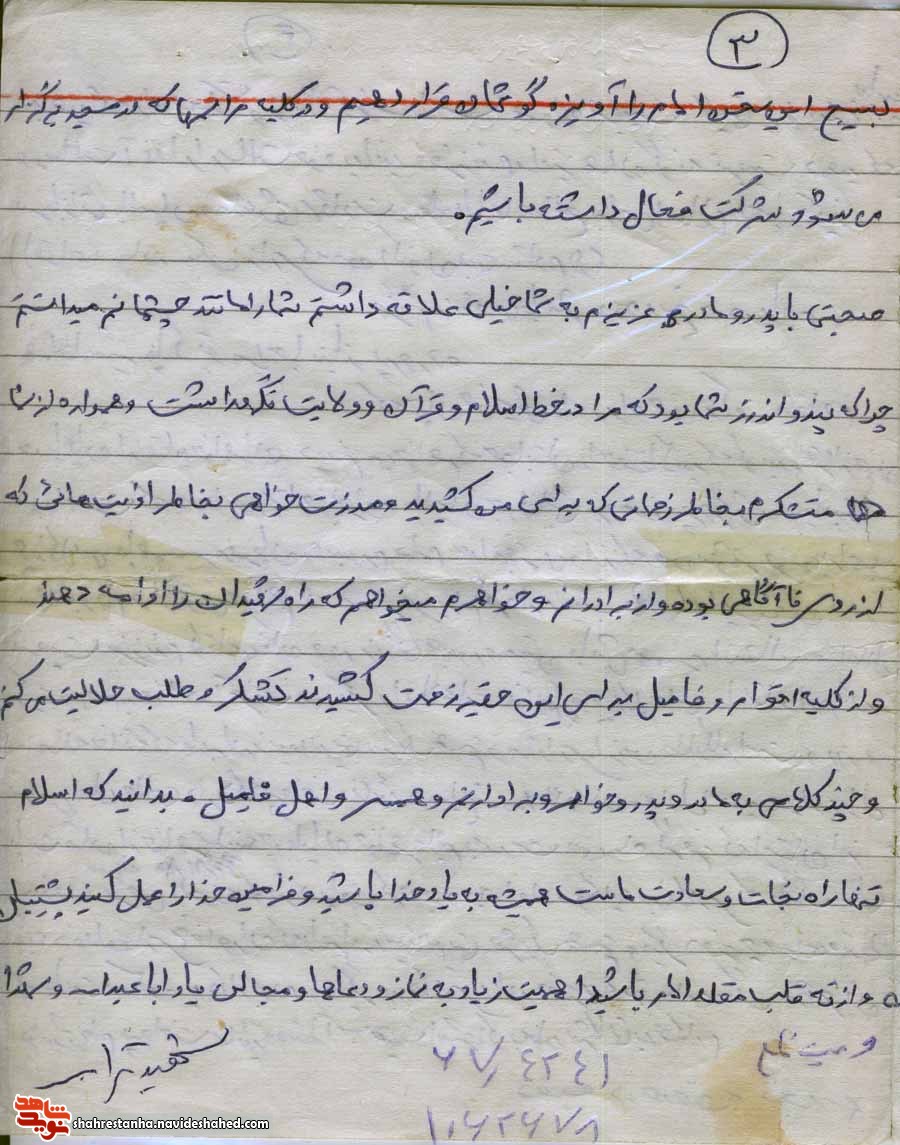 ۳
بسیج این سخن امام را آویزه گوشمان قرار دهیم و در کلیه مراسمها که در مسجد برگزار
می شود شرکت فعال داشته باشیم.
صحبتی با پدر و مادر عزیزم به شما خیلی علاقه داشتم شما را مانند چشمانم میدانستم
چرا که پند و اندرز شما بود که مرا در خط اسلام و قرآن و ولایت نگهداشت و همواره از شما
متشکرم بخاطر زحماتی که برای من کشیدید و معذرت خواهی بخاطر اذیت هائی که
از روی ناآگاهی بوده و از برادران و خواهرم میخواهم که راه شهیدان را ادامه دهند
و از کلیه اقوام و فامیل برای این حقیر زحمت کشیدند تشکر و طلب حلالیت می کنم
و چند کلامی به مادر و پدر و خواهر و برادارنم و همسر و اهل فامیل . بدانید که اسلام
تنها راه نجات و سعادت ماست همیشه به یاد خدا باشید و فرامین خدا را عمل کنید پشتیبان
و از ته قلب مقلد امام باشید اهمیت زیاد به نماز و دعاها و مجالس یاد اباعبدالله و شهدا
وصیت نامه
شهید ترابی
۶۷/۴۲۴۱
۱۰۶۲۶۷۸
شاهد
نوید
shahrestanha.navideshahed.com